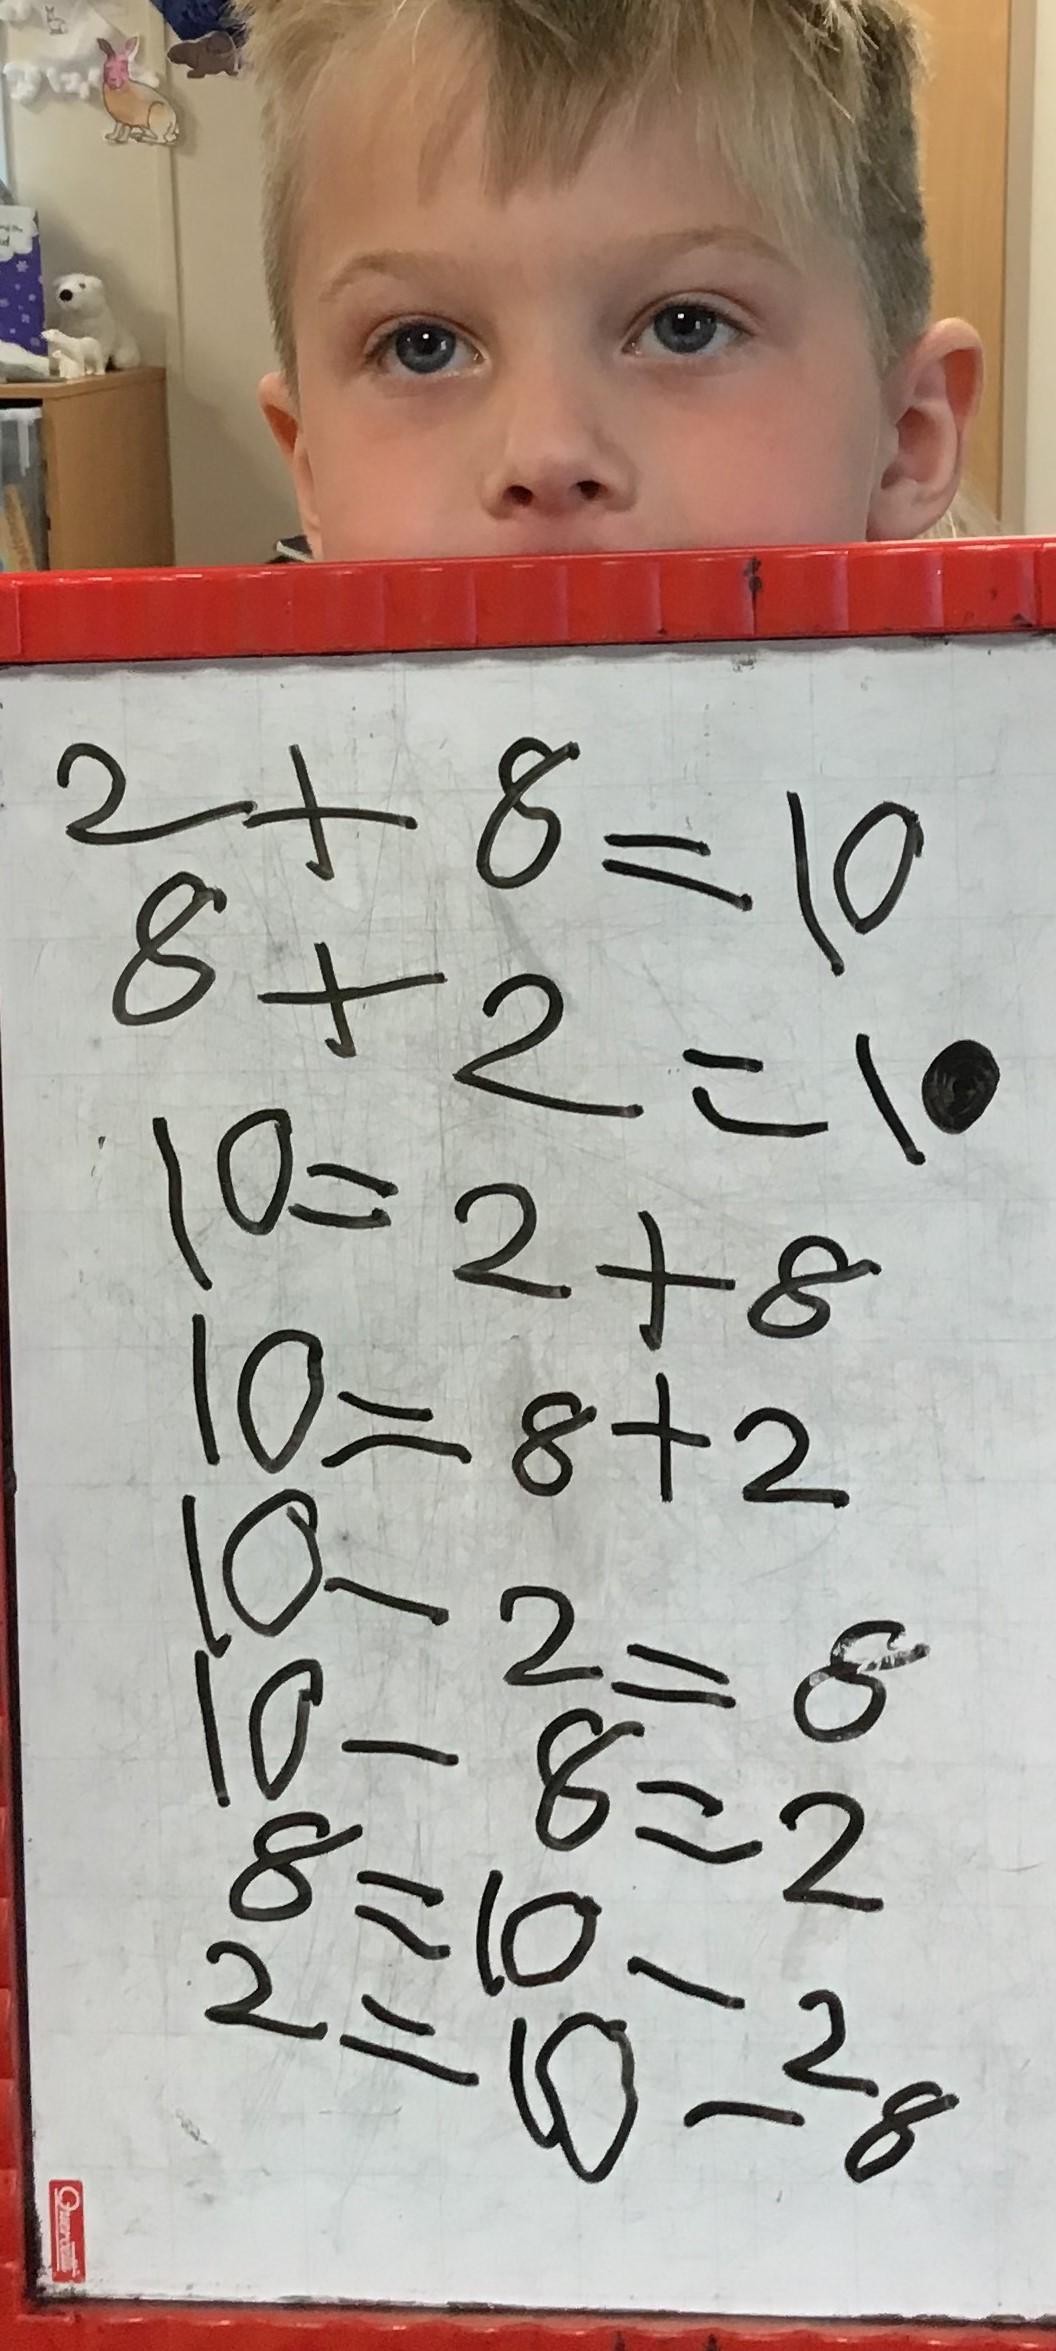 2 + 8 = 10
8 + 2 = 10
10 = 2 + 8
10 = 8 + 2
10 - 2 = 8
10 - 8 = 2
8 = 10 - 2
2 = 10 - 8
Quercetti